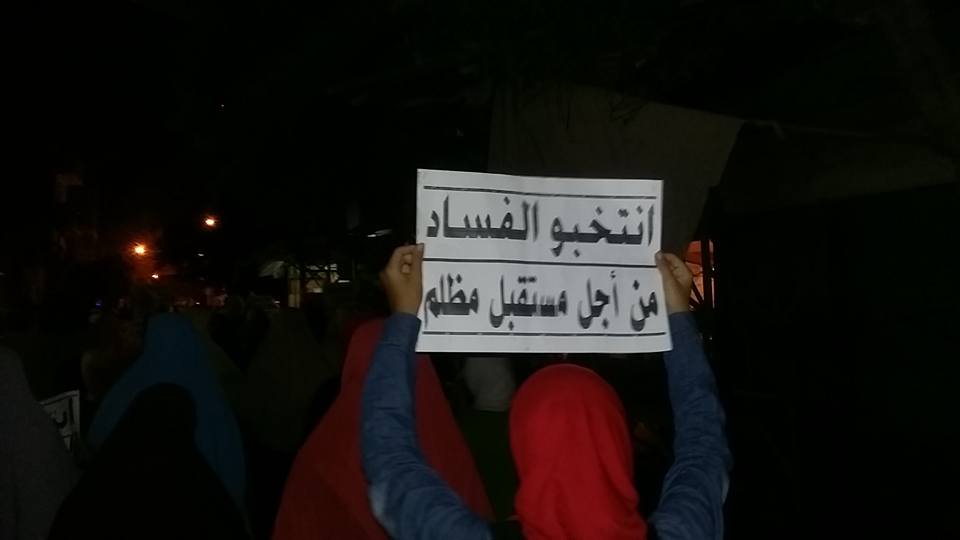 انتخبو الفساد
من أجل مستقبل مظلم